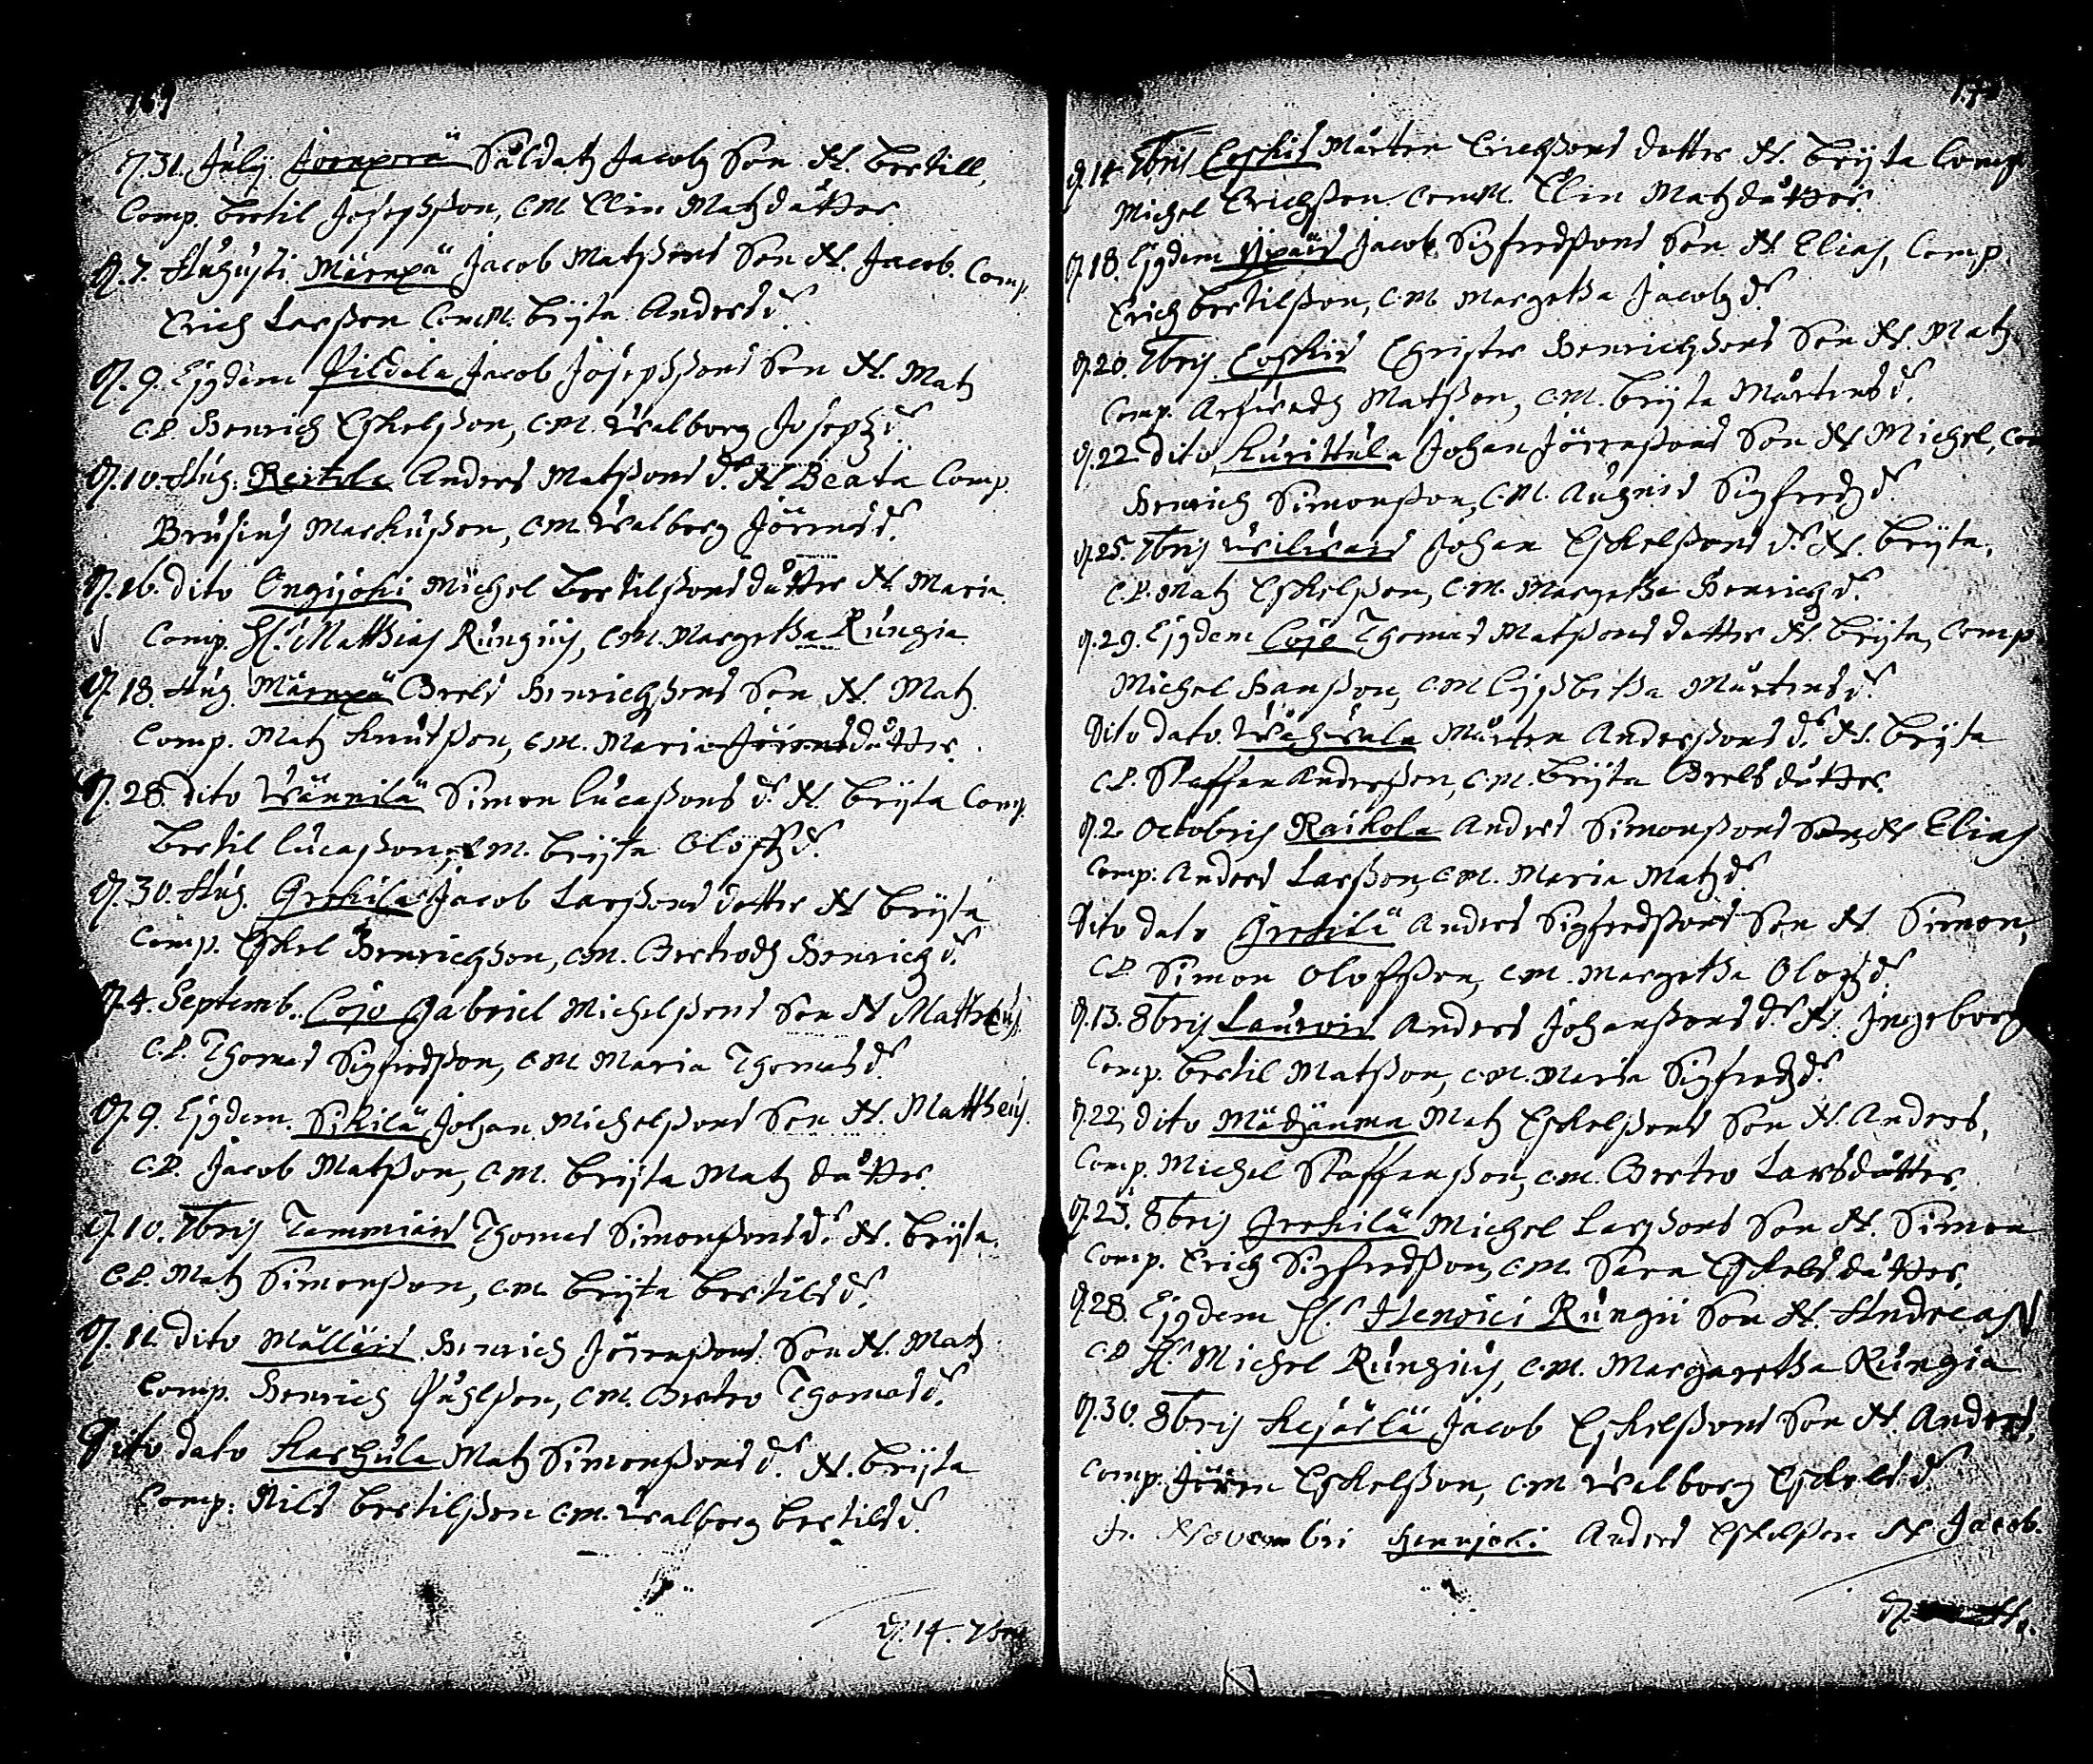 169
D. 31. Julij. Joenperä Såldatz Jacobz Son N. Bertill,
Comp. Bertil Josepsson, C.M. Elin Matzdåtter.
D. 7. Augusti. Mäenpä Jacob Matssons Son N. Jacob. Comp.
Erich Larsson C.M. Brijta Anders d.r
D. 9. Ejgdem Pildola Jacob Josepssons Son N. Matz
C.P. Henrich Eskelsson, C.M. Walborg Josephz d.r
D. 10. Aug. Reitola Anders Matssons d.r N Beata Comp.
Brusius Markusson, C.M. Walborg Jörens d.r
D. 16. dito Ongijoki Michel Bertilssons dåtter N. Maria
Comp. H.r Matthias Rungius, C.M. Margetha Rungia
D. 18. Aug. Mäenpä Brels Henrichssons Son N. Matz
Comp. Matz Knutsson, C.M. Maria Jörensdåtter.
D. 28. dito Wännilä Simon Lucassons d.r N. Brijta Comp.
Bertil Lucasson, C.M. Brijta Oloffz d.r
D. 30. Aug. Grekilä Jacob Larssons dotter N Brijta
Comp. Eskel Henrichson, C.M. Bertrodh Henrichz d.r
D. 4. Septemb. Cojo Gabriel Michelssons Son N Mattheus
C.P. Thomas Sigfredsson, C.M. Maria Thomas d.r
D. 9. Ejgdem Sikilä Johan Michelssons Son N. Mattheus.
C.P. Jacob Matsson, C.M. Brijta Matz dåtter.
D. 10. 7bris Tommias Thomas Simonssons d.r N. Brijta.
C.P. Matz Simonsson, C.M. Brijta Bertils d.r
D. 11. dito Mulläis Henrich Jörenssons Son N. Matz
Comp. Henrich Påhlson, C.M. Bertro Thomas d.r
Dito dato Karhula Matz Simonssons d.r N. Brijta
Comp. Nils Bertilsson C.M. Walborg Bertils d.r
D. 14. 7bris
D. 14. 7bris Coskis Mårten Erichssons dotter N. Brijta Comp
Michel Erichsson C.M. Elin Matzdåtter.
D. 18. Ejgdem Ypäis Jacob Sigfredssons Son N. Elias, Comp.
Erich Bertilsson, C.M. Margetha Jacobz d.r
D. 20. 7bris Coskis Christer Henrichsons Son N. Matz
Comp. Arfwedh Matsson, C.M. Brijta Mårtens d.r
D. 22 dito, Kurittula Johan Jörenssons Son N Michel, Com
Henrich Simonsson, C.M. Augnis Sigfredz d.r
D. 25. 7bris Wilwais Johan Eskelssons d.r N. Brijta.
C.P. Matz Eskelsson, C.M. Margetha Henrichz d.r
D. 29. Ejgdem Cojo Thomas Matssons dotter N. Brijta, Comp
Michel Hansson, C.M. Lijsbetha Mårtens d.r
Dito dato. Wähwala Mårten Anderssons d.r N. Brijta
C.P. Staffan Andersson, C.M. Brijta Brels dåtter.
D. 2 Octobris Raikola Anders Simonssons Son N Elias
Comp. Anders Larsson, C.M. Maria Matz d.r
Dito dato Grekilä Anders Sigfredssons Son N Simon,
C.P. Simon Olofsson, C.M. Margetha Olofz d.r
D. 13. 8bris Lauroin Anders Johanssons d.r N. Ingeborg
Comp. Bertil Matsson, C.M. Maria Sigfredz d.r
D. 22. dito Mädzänma Matz Eskelssons Son N. Anders,
Comp. Michel Staffansson, C.M. Bertro Larsdåtter.
D. 23. 8bris Grekilä Michel Larssons Son N. Simon
Comp. Erich Sigfredsson, C.M. Sara Eskels dåtter.
D. 28. Ejgdem H.r Henrici Rungii Son N. Andreas
C.P. H.r Michel Rungius, C.M. Margaretha Rungia
D. 30. 8bris Kejärlä Jacob Eskelssons Son N. Anders,
Comp. Jören Eskelsson, C.M. Walborg Eskels d.r
Novembri Hennjoki Anders Eskelsson N Jacob.